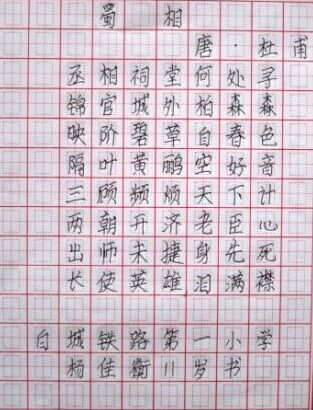 蜀相
唐·杜甫
丞相祠堂何处寻
锦官城外柏森森
映阶碧草自春色
隔叶黄鹂空好音
三顾频烦天下计
两朝开济老臣心
出师未捷身先死
长使英雄泪满襟
白城铁路第一小学
杨佳衡11岁书